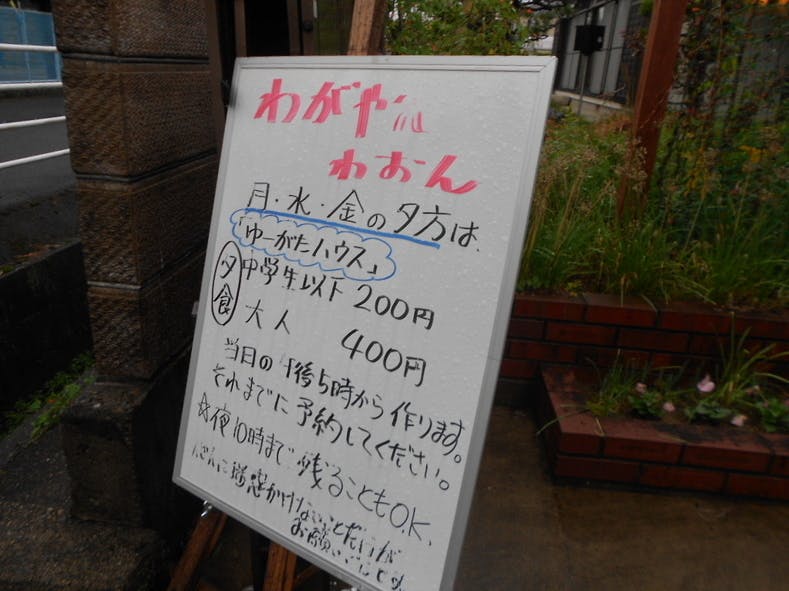 わがや de
わおん
月・水・金の夕方は、
「ゆーがたハウス」
夕食 中学生以下 200円
大人 400円
当日の午後5時から作ります。
それまでに予約してください。
☆夜10時まで残ることもO.K.
迷惑かけないことだけが